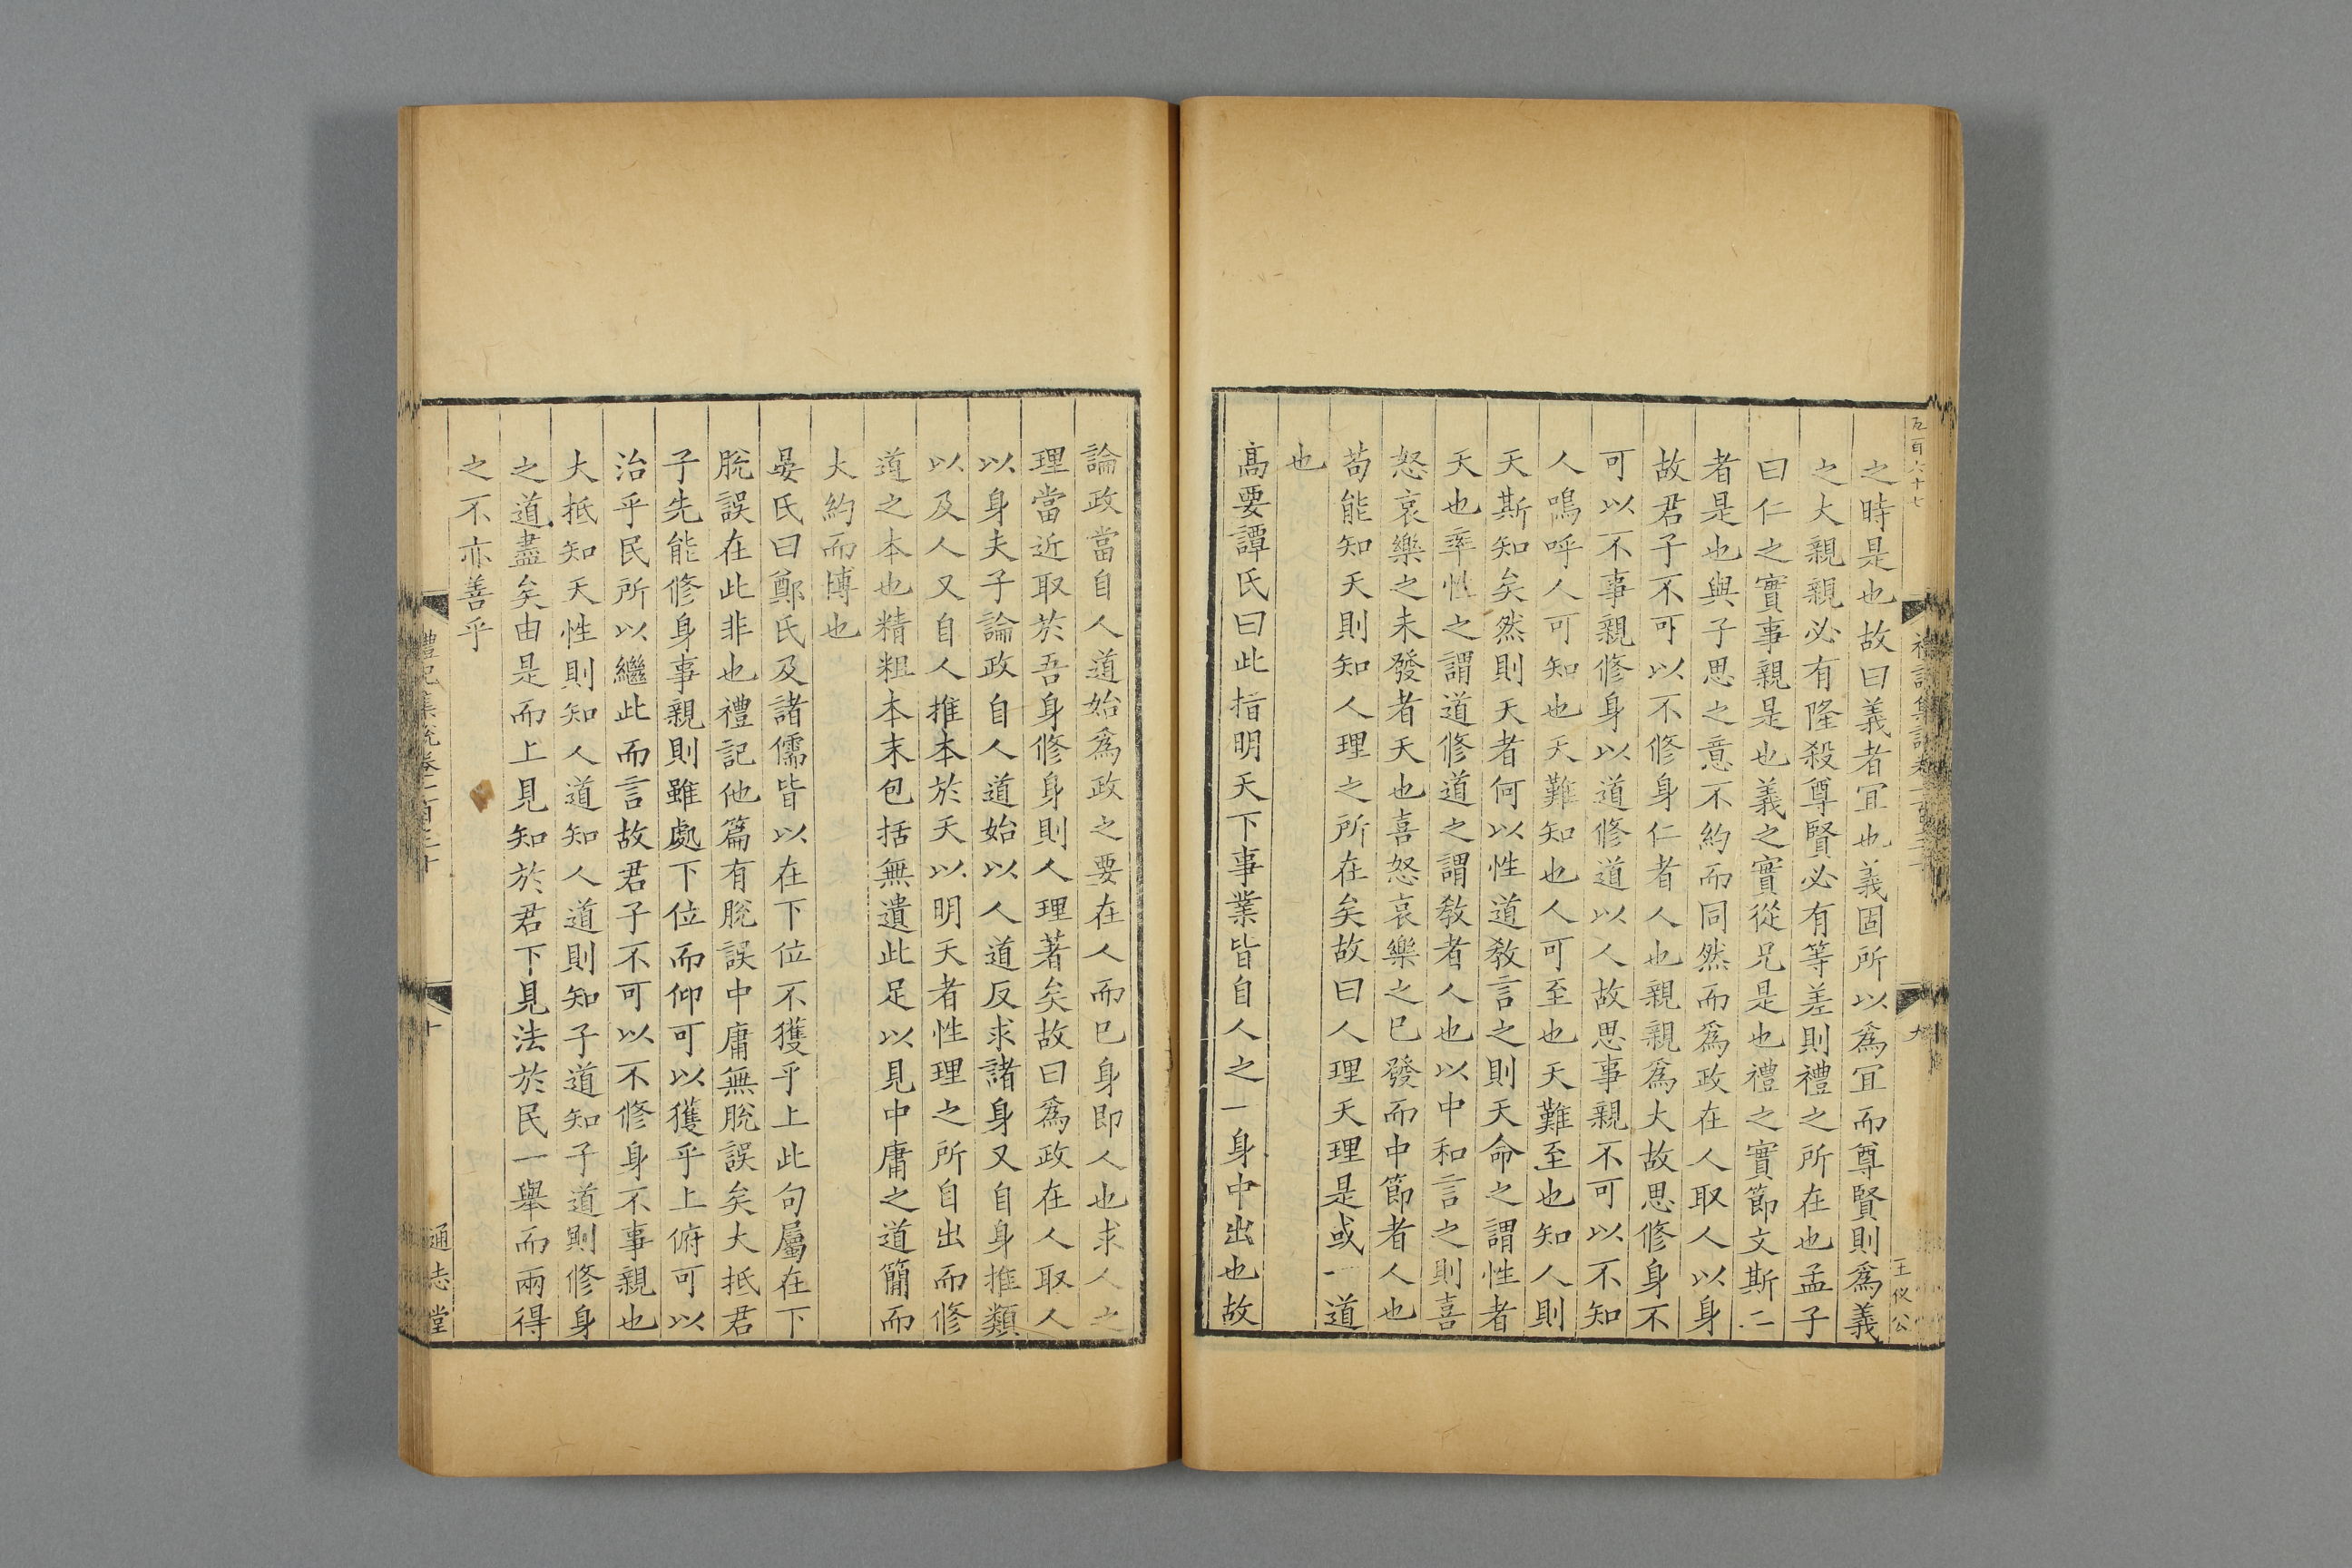 五百六十七
王攸公
之時是也故曰義者冝也義固所以爲冝而尊賢則爲義
之大親親必有隆殺尊賢必有等差則禮之所在也孟子
曰仁之實事親是也義之實從兄是也禮之實節文斯二
者是也與子思之意不約而同然而爲政在人取人以身
故君子不可以不修身仁者人也親親爲大故思修身不
可以不事親修身以道修道以人故思事親不可以不知
人嗚呼人可知也天難知也人可至也天難至也知人則
天斯知矣然則天者何以性道敎言之則天命之謂性者
天也率性之謂道修道之謂敎者人也以中和言之則喜
怒哀樂之未發者天也喜怒哀樂之巳發而中節者人也
苟能知天則知人理之所在矣故曰人理天理是或一道
也
高要譚氏曰此指明天下事業皆自人之一身中出也故
論政當自人道始爲政之要在人而巳身即人也求人之
理當近取於吾身修身則人理著矣故曰爲政在人取人
以身夫子論政自人道始以人道反求諸身又自身推類
以及人又自人推本於天以明天者性理之所自出而修
道之本也精粗本末包括無遺此足以見中庸之道簡而
大約而博也
晏氏曰鄭氏及諸儒皆以在下位不獲乎上此句屬在下
脫誤在此非也禮記他篇有脫誤中庸無脫誤矣大抵君
子先能修身事親則雖處下位而仰可以獲乎上俯可以
治乎民所以繼此而言故君子不可以不修身不事親也
大抵知天性則知人道知人道則知子道知子道則修身
之道盡矣由是而上見知於君下見法於民一舉而兩得
之不亦善乎
禮記集說卷一百三十
十
通志堂